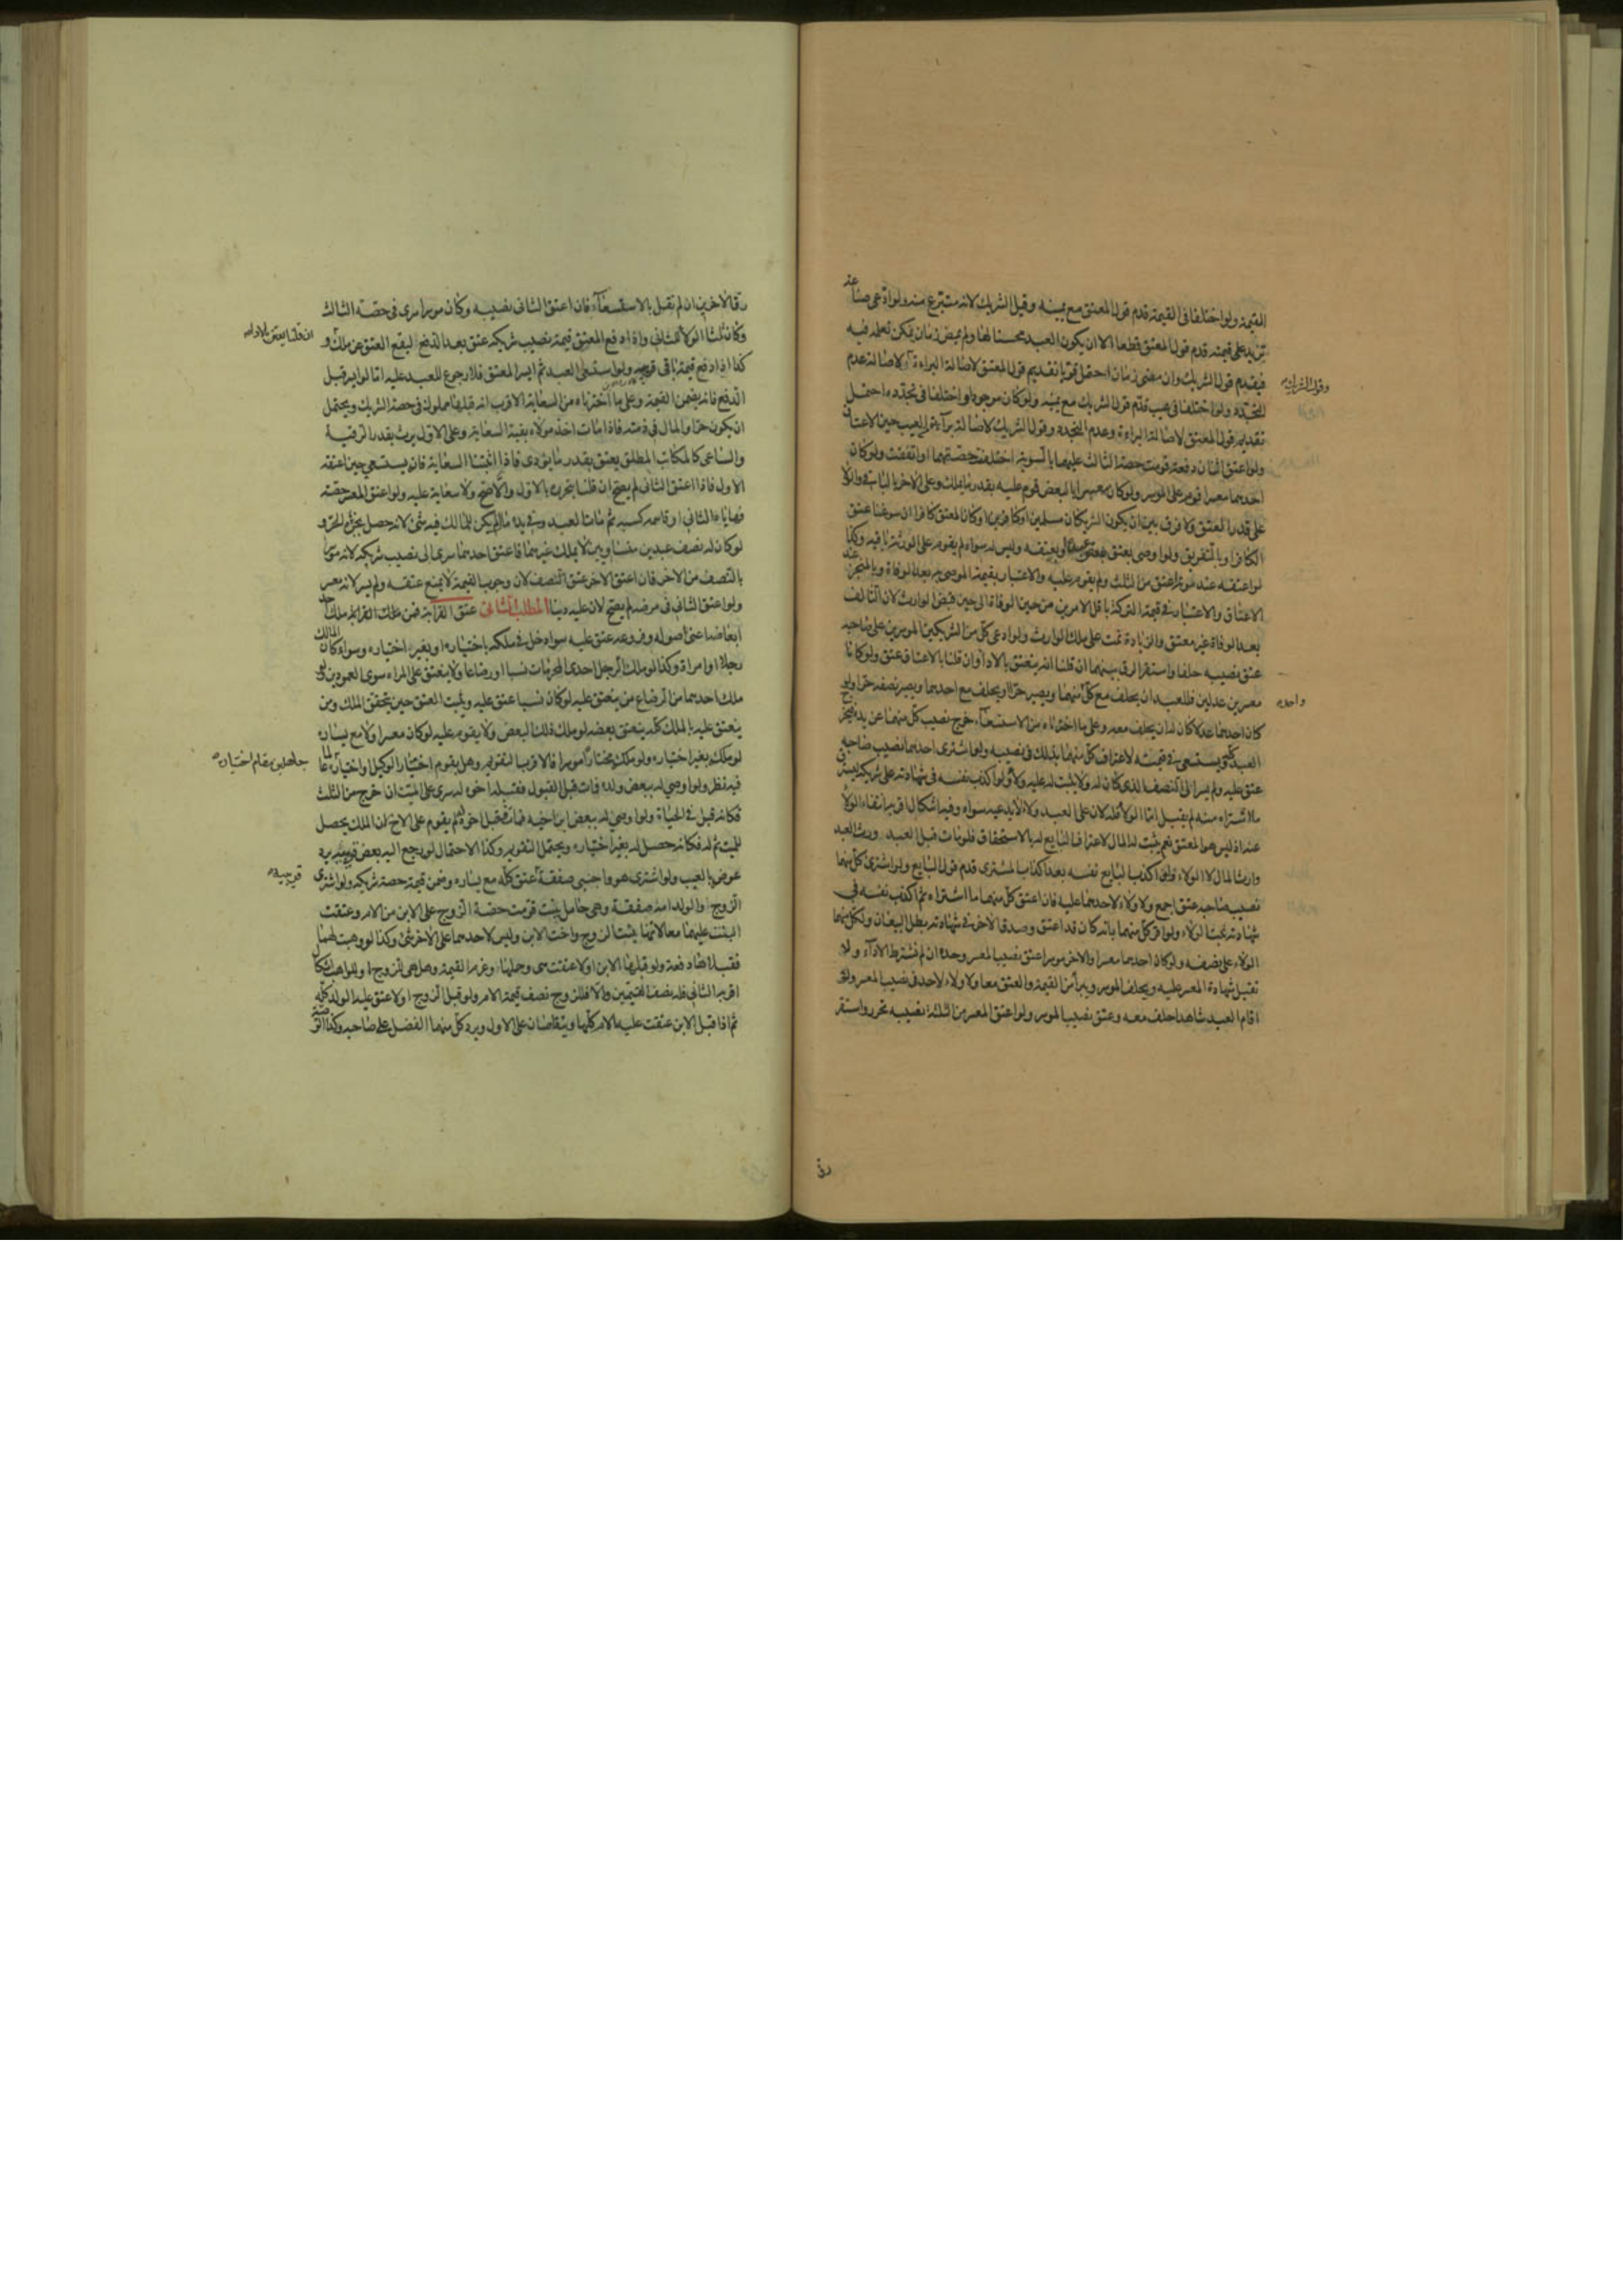 القيمة ولو اختلفا فى القيمة قدم قول المعتق مع يمينه وقيل الشريك لانه منتزع منه ولو ادعى صناعة
تزيد على قيمته قدم قول المعتق قطعا الا ان يكون العبد محسنا لها ولم يمض زمان يمكن تعلمه فيه
فيقدم قول الشريك وان مضى زمان احتمل قويا تقديم قول المعتق لاصالة البراءة لاصالة عدم
وقول الشريك
التجدد ولو اختلفا فى عيب قدم قول الشريك مع يمينه ولو كان موجودا واختلفا فى تجدده احتمل
تقديم قول المعتق لاصالة البراءة وعدم التجدد وقول الشريك لاصالة براءته من العيب حين الاعتاق
ولو اعتق اثنان دفعة قومت حصة الثالث عليهما بالسوية اختلفت حصتهما او اتفقت ولو كان
احدهما معسرا قوم على الموسر ولو كان معسرا بالبعض قوم عليه بقدر ما يملك وعلى الاخر بالباقى والولاء
على قدر العتق ولا فرق بين ان يكون الشريكان مسلمين او كافرين او كان المعتق كافرا ان سوغنا عتق
الكافر او بالتفريق ولو اوصى بعتق بعض عبده او بعتقه وليس له سواه لم يقوم على الورثة باقيه وكذا
لو اعتقه عند موته اعتق من الثلث ولم يقوم عليه والاعتبار بقيمة الموصى به بعد الوفاة وبالمنجز عند
الاعتاق والاعتبار فى قيمة التركة باقل الامرين من حين الوفاة الى حين قبض الوارث لان التالف
بعد الوفاة غير معتق والزيادة نمت على ملك الوارث ولو ادعى كل من الشريكين الموسرين على صاحبه
عتق نصيبه حلفا واستقر الرق بينهما ان قلنا انه ينعتق بالاداء وان قلنا بالاعتاق عتق ولو كانا
معسرين عدلين فللعبد ان يحلف مع كل منهما ويصير حرا او يحلف مع احدهما ويصير نصفه حرا ولو
واحد
كان احدهما عدلا كان له ان يحلف معه وعلى ما اخترناه من الاستسعاء يخرج نصيب كل منهما عن يده فيخرج
العبد كله ويستسعى فى قيمته لاعتراف كل منهما بذلك فى نصيبه ولو اشترى احدهما نصيب صاحبه
عتق عليه ولم يسر الى النصف الذى كان له ولا يثبت له عليه ولاء ولو اكذب نفسه فى شهادته على شريكه ليسترق
ما اشتراه منه لم يقبل اما الولاء فله لان على العبد ولاء لا يدعيه سواه وفيه اشكال اقربه انتفاء الولاء
عنه اذ ليس هو المعتق نعم يثبت له المال لاعتراف البايع له بالاستحقاق فلو مات قبل العبد ورث العبد
وارث المال لا الولاء ولو اكذب البايع نفسه بعد اكذاب المشترى قدم قول البايع ولو اشترى كل منهما
نصيب صاحبه عتق اجمع ولا ولاء لاحدهما عليه فان اعتق كل منهما ما اشتراه ثم اكذب نفسه فى
شهادته ثبت الولاء ولو اقر كل منهما بانه كان قد اعتق وصدق الاخر فى شهادته بطل البيعان ولكل منهما
الولاء على نصفه ولو كان احدهما معسرا والاخر موسرا عتق نصيب المعسر وحده ان لم نشترط الاداء ولا
تقبل شهادة المعسر عليه ويحلف الموسر ويبرأ من القيمة والعتق معا ولا ولاء لاحد فى نصيب المعسر ولو
اقام العبد شاهدا حلف معه وعتق نصيب الموسر ولو اعتق المعسر من الثلثة نصيبه تحرر واستقر
رق
رق الاخرين ان لم نقبل بالاستسعاء فان اعتق الثانى نصيبه وكان موسرا سرى فى حصة الثالث
وكان ثلثا الولاء للثانى واذا دفع المعتق قيمة نصيب شريكه عتق بعد الدفع ليقع العتق عن ملك و
ان قلنا يعتق بالاداء
كذا اذا دفع قيمة باقى قريبه ولو استسعى العبد ثم ايسر المعتق فلا رجوع للعبد عليه اما لو ايسر قبل
الدفع فانه يضمن القيمة وعلى ما اخترناه من السعاية الاقرب انه قبلها مملوك فى حصة الشريك ويحتمل
ان يكون حرا والمال فى ذمته فاذا مات اخذ مولاه بقية السعاية وعلى الاول يرث بقدر الرقية
والساعى كالمكاتب المطلق يعتق بقدر ما يؤدى فاذا اثبتنا السعاية فانه يستسعى حين اعتقه
الاول فاذا اعتق الثانى لم يصح ان قلنا بتحرره بالاول والا صح ولا سعاية عليه ولو اعتق المعسر حصته
فهاياه الثانى او قاسمه كسبه ثم مات العبد وفى يده مال لم يكن للمالك فيه شئ لانه حصل بجزئه الحر و
لو كان له نصف عبدين متساويين لا يملك غيرهما فاعتق احدهما سرى الى نصيب شريكه لانه موسر
بالنصف من الاخر فان اعتق الاخر عتق النصف لان وجوب القيمة لا يمنع عتقه ولم يسر لانه معسر
ولو اعتق الثانى فى مرضه لم يصح لان عليه دينا المطلب الثانى عتق القرابة فمن ملك احد
ابعاضه اعنى اصوله وفروعه عتق عليه سواء دخل فى ملكه باختياره او بغير اختياره وسواء كان المالك
رجلا او امراة وكذا لو ملك الرجل احدى المحرمات نسبا او رضاعا ولا ينعتق على المراة سوى العمودين ولو
ملك احدهما من الرضاع من ينعتق عليه لو كان نسبا عتق عليه ويثبت العتق حين يتحقق الملك ومن
ينعتق عليه بالملك كله ينعتق بعضه لو ملك ذلك البعض ولا يقوم عليه لو كان معسرا ولا مع يساره
لو ملكه بغير اختياره ولو ملكه مختارا موسرا فالاقرب التقويم وهل يقوم اختيار الوكيل واختياره عالما
جاهلين مقام اختياره
فيه نظر ولو اوصى له ببعض ولده فمات قبل القبول فقبله اخوه له سرى على الميت ان خرج من الثلث
فكانه قبل فى الحياة ولو اوصى له ببعض ابن اخيه فمات فقبل اخوه لم يقوم على الاخ لان الملك يحصل
للميت ثم له فكانه حصل له بغير اختياره ويحتمل التقويم وكذا الاحتمال لو رجع اليه بعض قريبه برد
عوضه بالعيب ولو اشترى هو واجنبى صفقة عتق كله مع يساره وضمن قيمة حصة شريكه ولو اشترى
قريبه
الزوج والولد امه صفقة وهى حامل ببنت قومت حصة الزوج على الابن من الام وعتقت
البنت عليهما معا لانها بنت الزوج واخت الابن وليس لاحدهما على الاخر شئ وكذا لو وهبت لهما
فقبلاها دفعة ولو قبلها الابن اولا عتقت هى وحملها وغرم القيمة وهل هى للزوج او للواهب اشكال
اقربه الثانى فله نصف القيمتين والا فللزوج نصف قيمة الام ولو قبل الزوج اولا عتق عليه الولد كله
ثم اذا قبل الابن عتقت عليه الام كلها ويتقاصان على الاول ويرد كل منهما الفضل على صاحبه وكذا